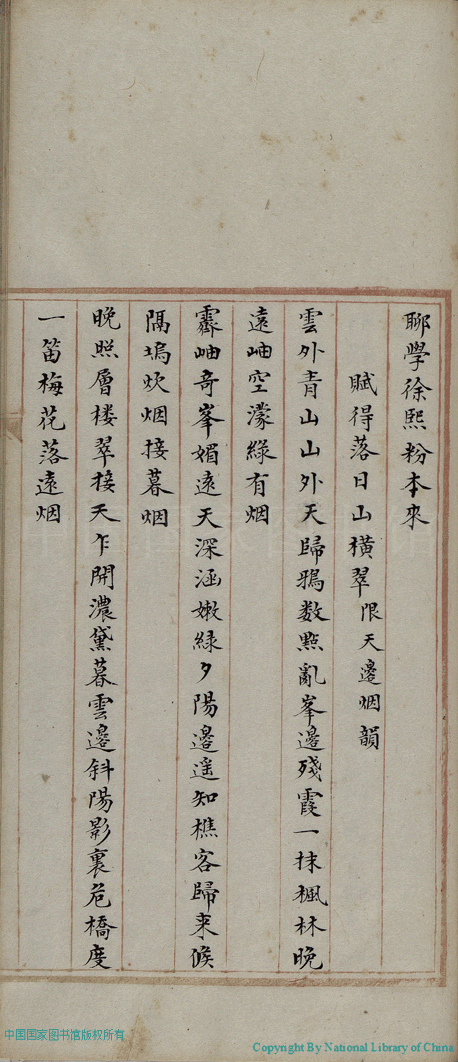 聊學徐熙粉本來
賦得落日山橫翠限天邊烟韻
雲外青山山外天歸鴉数點亂峯邊殘霞一抹楓林晚
遠岫空濛綠有烟
霽岫奇峯媚遠天深涵嫩綠夕陽邊遥知樵客歸来候
隔塢炊烟接暮烟
晚照層楼翠接天乍開濃黛暮雲邊斜陽影裏危橋度
一笛梅花落遠烟
中国国家图书馆版权所有
Copyright By National Library of China